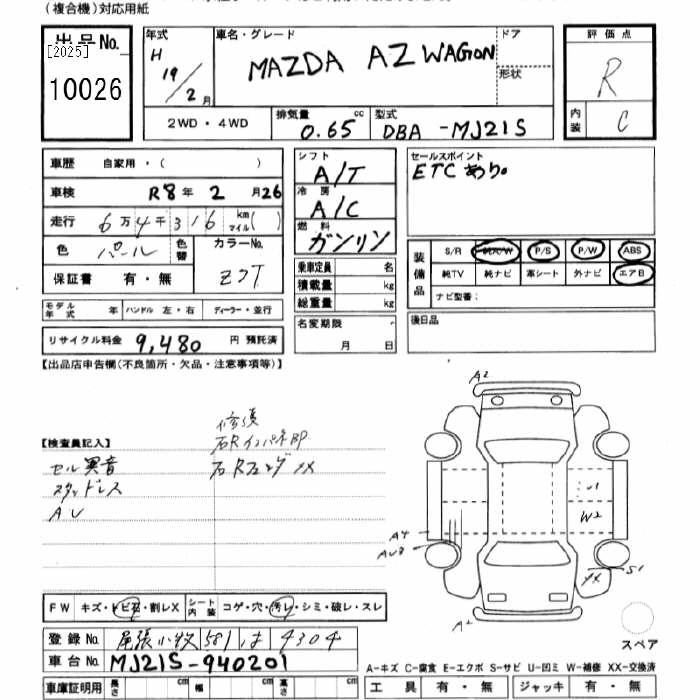 (複合機)対応用紙
出品No.
[2025]
10026
年式
H
19/2月
車名・グレード
MAZDA AZ WAGON
ドア
形状
評価点
R
内装
C
2WD・4WD
排気量 cc
0.65
型式
DBA-MJ21S
車歴 自家用・( )
車検 R8年2月26
走行 6万4千316 km マイル( )
色 パール
色替
カラーNo.
Z7T
保証書 有・無
モデル年式 年 ハンドル 左・右 ディーラー・並行
リサイクル料金 9,480 円 預託済
シフト
A/T
冷房
A/C
燃料
ガソリン
乗車定員 名
積載量 kg
総重量 kg
名変期限
月 日
セールスポイント
ETCあり。
装備品
S/R 純A/W P/S P/W ABS
純TV 純ナビ 革シート 外ナビ エアB
ナビ型番:
後日品
【出品店申告欄(不良箇所・欠品・注意事項等)】
【検査員記入】
修復
右Rインパネ部
セル異音
右Rフェンダ XX
スタッドレス
AU
A2
U1
W2
A4
AU3
XX
S1
A2
スペア
FW キズ・トビ石・割レX
シート内装 コゲ・穴・汚レ・シミ・破レ・スレ
登録No. 尾張小牧 581 は 4304
車台No. MJ21S-940201
車庫証明用 長さ cm 幅 cm 高さ cm
A-キズ C-腐食 E-エクボ S-サビ U-凹ミ W-補修 XX-交換済
工具 有・無 ジャッキ 有・無